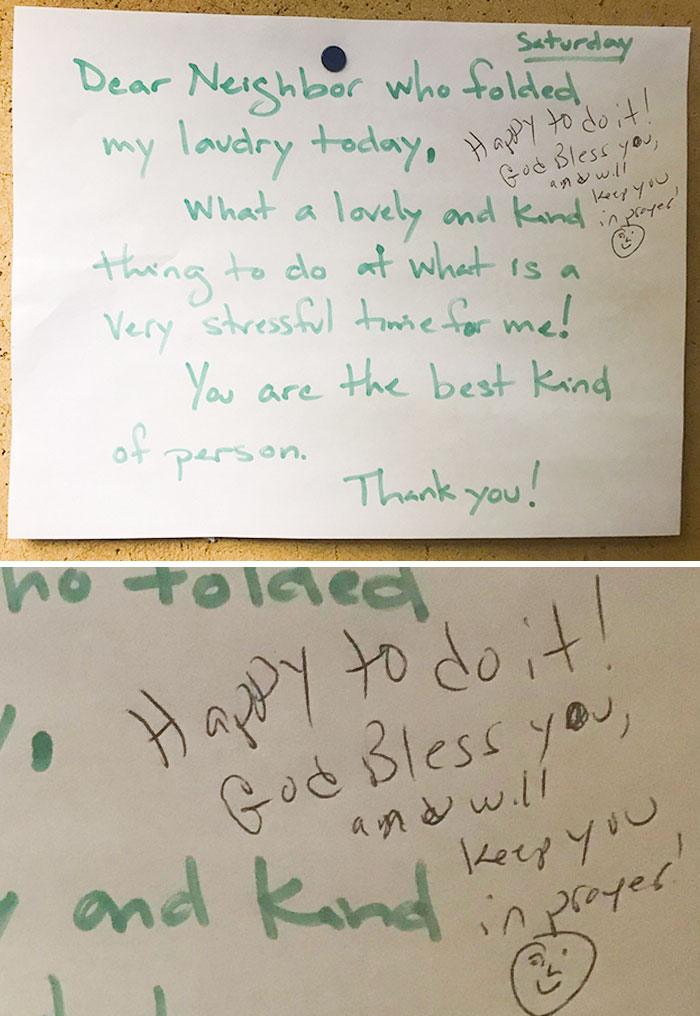 Saturday
Dear Neighbor who folded
my laudry today,
What a lovely and kind
thing to do at what is a
very stressful time for me!
You are the best kind
of person.
Thank you!
Happy to do it!
God Bless you,
and will
keep you
in prayer!
ho folded
Happy to do it!
God Bless you,
and will
keep you
in prayer!
y and kind